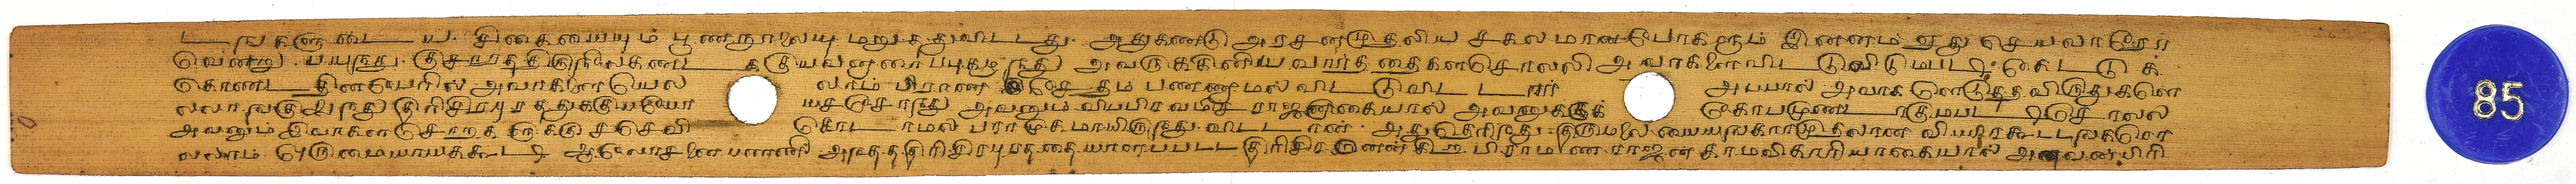 டஙகளுடைய சிகையையும பூணநூலையு மறுத துவிடடது அதுகண்டு அரசனமுதலிய சகலமானபேரகளும இனனம ஏது செயவாரோ
வென்று பயநது குசராததிருநிலைகணட அவருககினிய வாரததைகளசொலலி அவரகளைவிட டுவிடுமபடி கேடடுக
கொணடதினபேரில அவரகளையெல லாம பிராண சேதம பணணாமலவிட டுவிட டார அபபால அவரக ளெடுதத விருதுகளெ
லலாஙகுலைநது திரிசிரபுரததுககுபபோ யசசேரநது அவனும விபபிரவமிச ராஜனாகையால அவனுககுக கோபமுணடாகுமபடி சொலல
அவனும இவரகளசொறக ளுககு செவி கொடாமல பராமுகமாயிருநது விடடான அதுதெரிநது திருமலை யையஙகாரமுதலான விபபிரகூடடஙகளெ
லலாம ஒருமையாயககூடி ஆலோசனை பணணி அநதத திரிசிரபுரததையாளபபடட திரிசிர னென கிற பிராமண ராஜன காமவிகாரியாகையால அவனபிரி